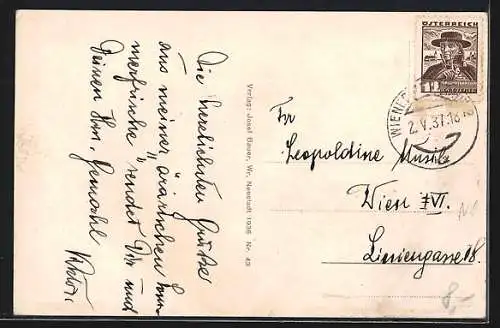 Die herzlichsten Grüße
aus meiner „ärarischen Som-
merfrische" sendet Dir und
Deinem Hrn. Gemahl
Viktor
Verlag: Josef Bauer, Wr. Neustadt 1936 Nr. 43
ÖSTERREICH
12
WIENER NEUSTADT 2
2.V.37.18
Fr
Leopoldine Musil
Wien XVI.
Liniengasse 18.
8,-